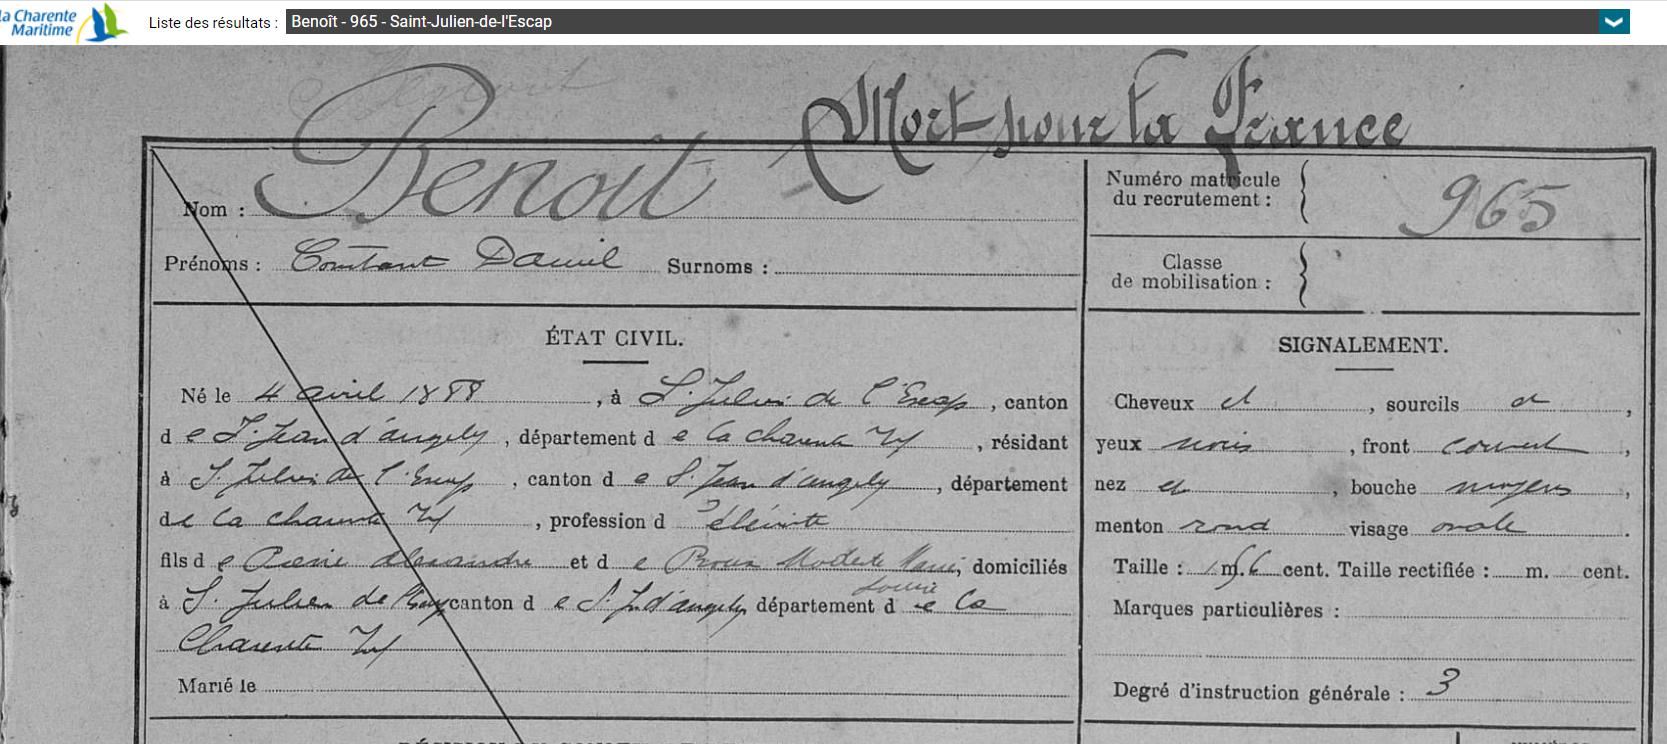 la Charente
Maritime
Liste des résultats : Benoît - 965 - Saint-Julien-de-l'Escap
Mort pour la France
Nom : Benoit
Numéro matricule
du recrutement : 965
Prénoms : Constant Daniel Surnoms :
Classe
de mobilisation :
ÉTAT CIVIL.
SIGNALEMENT.
Né le 4 avril 1888, à St. Julien de l'Escap, canton
Cheveux , sourcils ,
d e St. Jean d'angely, département d e la charente Inf, résidant
yeux noirs, front couvert,
à St. Julien de l'Escap, canton d e St. Jean d'angely, département
nez , bouche moyens,
de la charente Inf, profession d
menton rond visage ovale.
fils d e Pierre alexandre et d e Roux Modeste Marie, domiciliés
Louise
Taille : 1 m. 66 cent. Taille rectifiée : m. cent.
à St. Julien de canton d e St. J. d'angely département d e la
Marques particulières :
Charente Inf
Marié le
Degré d'instruction générale : 3